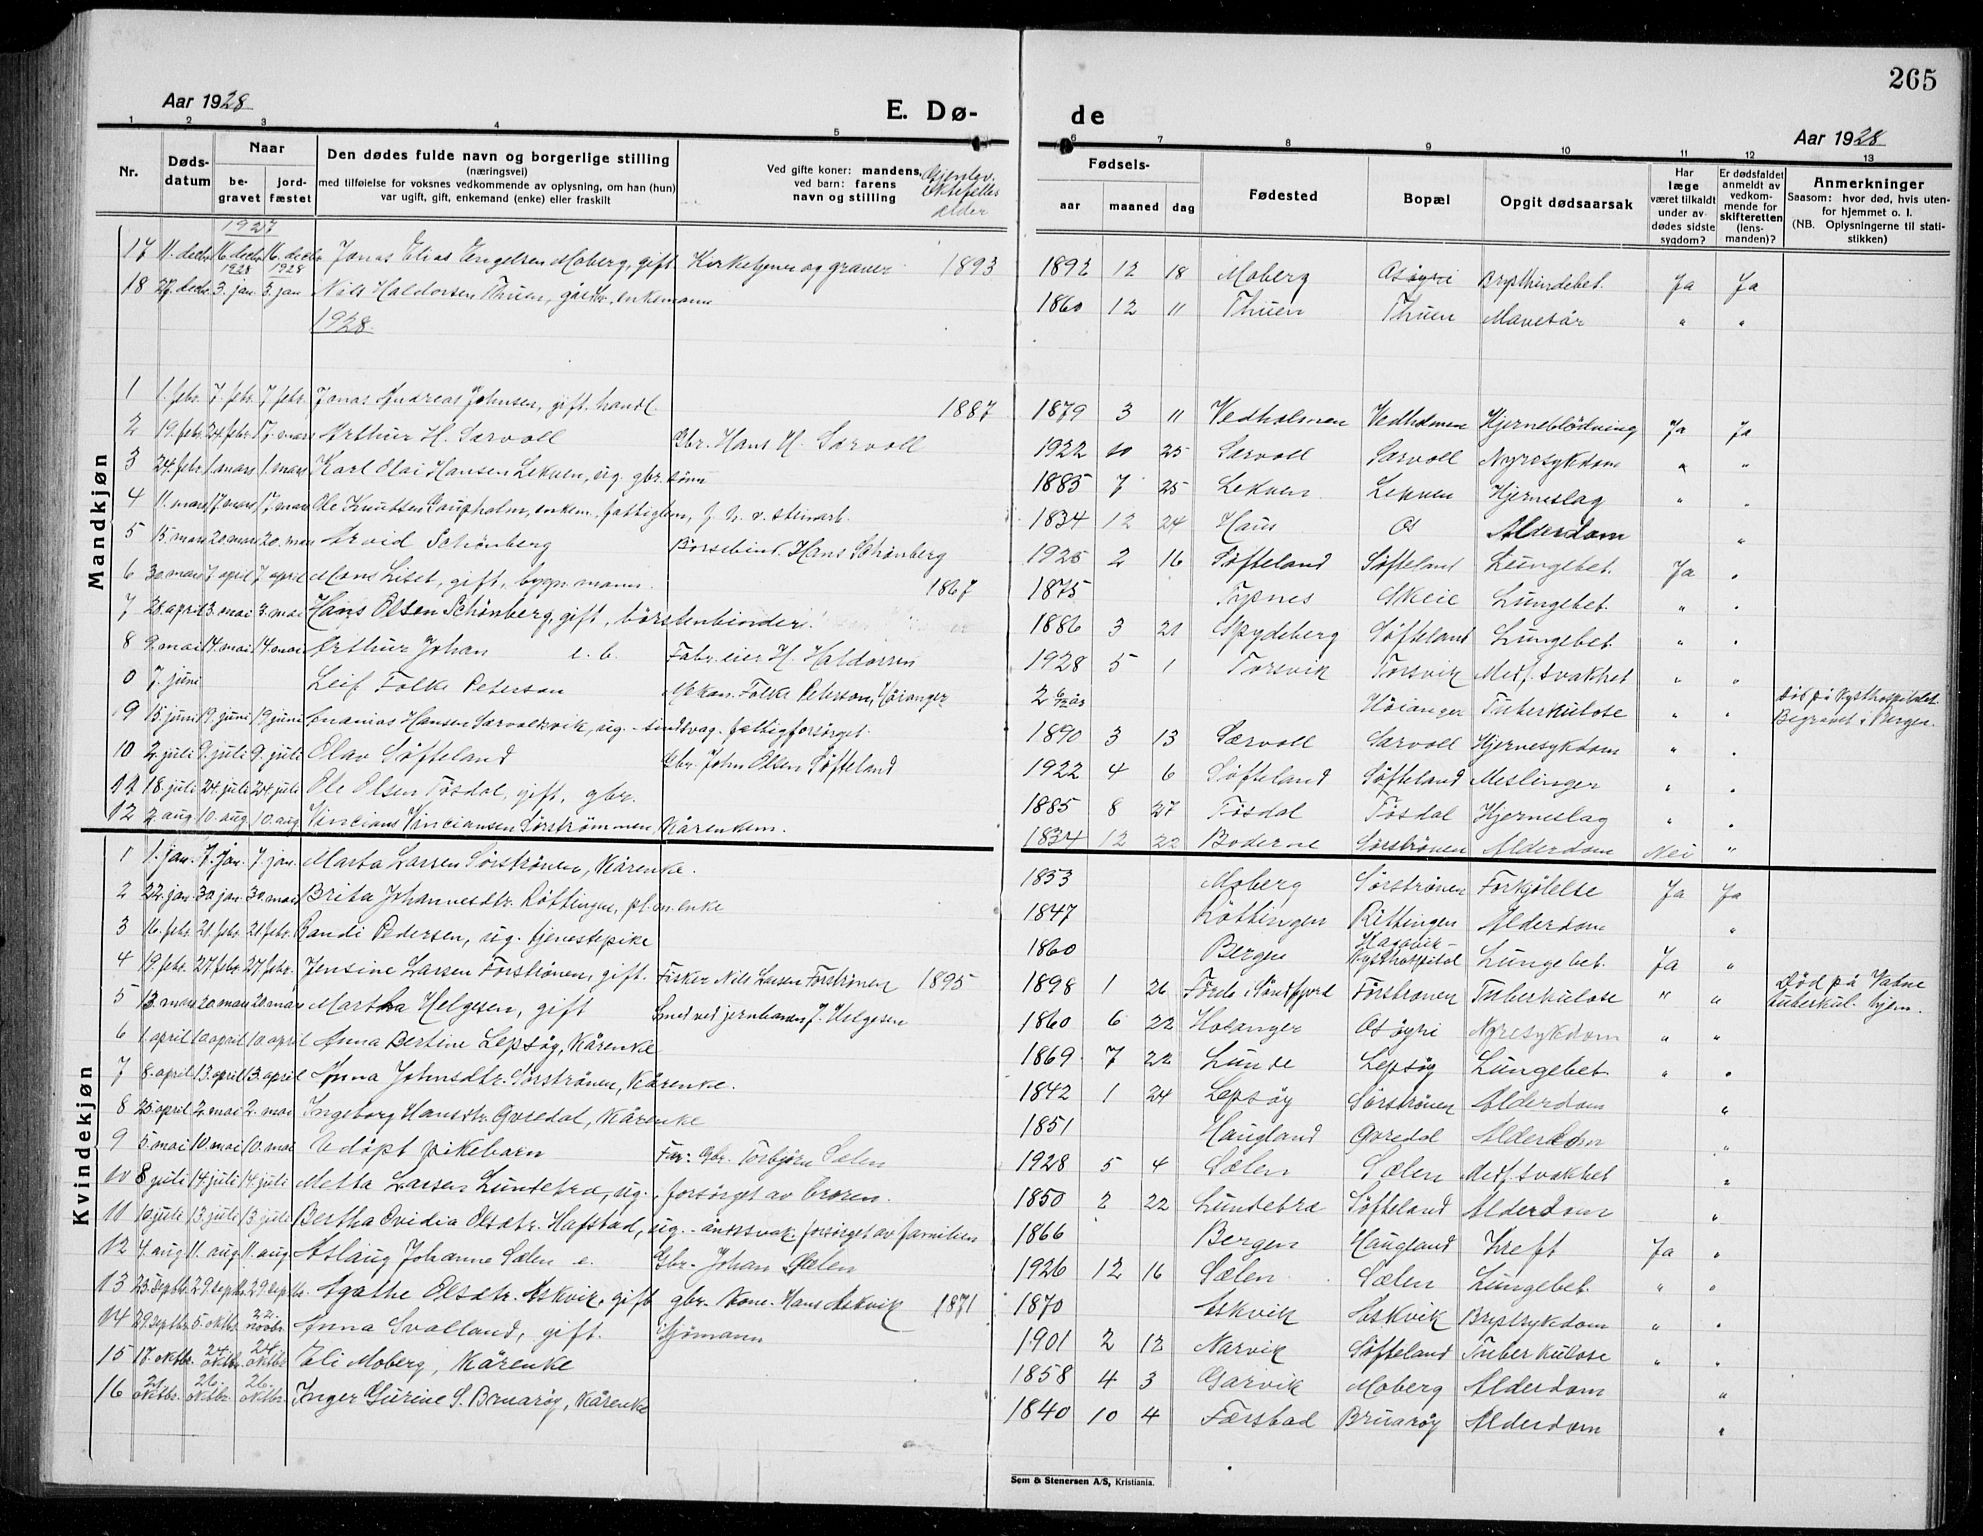 265
Aar 1928
E. Dø-
de
Aar 1928
1 2 3 4 5
6 7 8 9 10 11 12 13
Nr.
Døds-
datum
Naar
be-
gravet
jord-
fæstet
Den dødes fulde navn og borgerlige stilling
(næringsvei)
med tilføielse for voksnes vedkommende av oplysning, om han (hun)
var ugift, gift, enkemand (enke) eller fraskilt
Ved gifte koner: mandens,
ved barn: farens
navn og stilling
Gjenlev.
ektefelles
alder
Fødsels-
aar maaned dag
Fødested
Bopæl
Opgit dødsaarsak
Har
læge
været tilkaldt
under av-
dødes sidste
sygdom?
Er dødsfaldet
anmeldt av
vedkom-
mende for
skifteretten
(lens-
manden)?
Anmerkninger
Saasom: hvor død, hvis uten-
for hjemmet o. l.
(NB. Oplysningerne til stati-
stikken)
Mandkjøn
1927
17 11. decbr. 16. decbr. 16. decbr. Jonas Elias Engelsen Moberg, gift Kirketjener og graver 1893 1892 12 18 Moberg Osøyri Brysthindebet. Ja Ja
1928 1928
18 27. decbr. 3. jan. 3. jan Nils Haldorsen Thuen, gårdbr., enkemann 1860 12 11 Thuen Thuen Mavesår " "
1928.
1 1. febr. 7. febr. 7. febr. Jonas Andreas Johnsen, gift. handl. 1887 1879 3 11 Vedholmen Vedholmen Hjerneblödning Ja Ja
2 19. febr. 24. febr. 17. mars Arthur H. Særvoll Gbr. Hans H. Særvoll 1922 10 25 Særvoll Særvoll Nyresykdom " "
3 24. febr. 1. mars 1. mars Karl Olai Hansen Lekven, ug. gbr. sønn 1885 7 25 Lekven Lekven Hjerneslag " "
4 11. mars 17. mars 17. mars Ole Knutsen Gaupholm, enkem. fattiglem, f. h. v. steinarb. 1834 12 24 Haus Os Alderdom "
5 15. mars 20. mars 20. mars Arvid Schönberg Börsebind. Hans Schönberg 1925 2 16 Söfteland Söfteland Lungebet. Ja "
6 30. mars 7. april 7. april Mons Liset, gift, bygn. mann. 1867 1875 Typnes Skeie Lungebet. " "
7 28. april 3. mai 3. mai Hans Olsen Schönberg, gift, börstenbinder 1886 3 21 Spydeberg Söfteland Lungebet. " "
8 9. mai 14. mai 14. mai Arthur Johan e. b. Fabr. eier H. Haldorsen 1928 5 1 Torsvik Torsvik Medf. svakhet " "
0 7. juni Leif Folke Peterson Mekan. Folke Peterson, Höianger 2 6/12 år Höianger Tuberkulose " " Död på Kysthospitalet. Begravet i Bergen.
9 15. juni 19. juni 19. juni Ananias Hansen Særvollvik, ug. - sindsvag. fattigforsörget. 1890 3 13 Særvoll Særvoll Hjernesykdom " "
10 2. juli 9. juli 9. juli Olav Söfteland Gbr. John Olsen Söfteland 1922 4 6 Söfteland Söfteland Meslinger " "
11 18. juli 24. juli 24. juli Ole Olsen Tösdal, gift, gbr. 1885 8 27 Tösdal Tösdal Hjerneslag " "
12 2. aug. 10. aug. 10. aug. Vincians Vinciansen Sörströnen, Kårenkem. 1834 12 22 Boderne Sörströnen Alderdom Nei "
Kvindekjøn
1 1. jan. 7. jan. 7. jan. Marta Larsen Sörströnen, Kårenke. 1853 Moberg Sörströnen Forkjölelse Ja Ja
2 22. jan. 30. jan. 30. mars Brita Johannesdtr. Röttingen, pl. m. enke 1847 Röttingen Röttingen Alderdom "
3 16. febr. 21. febr. 21. febr. Randi Pedersen, ug. tjenestepike 1860 Bergen Hagavik- Kysthospital Lungebet. Ja "
4 19. febr. 27. febr. 27. febr. Jensine Larsen Forströnen, gift. Fisker Nils Larsen Forströnen 1895 1898 1 26 Förde Söndfjord Förströnen Tuberkulose " " Död på Vadne tuberkul. hjem.
5 13. mars 20. mars 20. mars Martha Helgesen, gift Smed ved jernbanen J. Helgesen 1860 6 22 Hosanger Osöyri Nyresykdom " "
6 1. april 10. april 10. april Anna Bertine Lepsöy, Kårenke 1869 7 22 Lunde Lepsöy Lungebet. " "
7 8. april 13. april 13. april Anna Johnsdtr. Sörströnen, Kårenke. 1842 1 24 Lepsöy Sörströnen Alderdom "
8 25. april 2. mai 2. mai Ingeborg Hansdtr. Gåsedal, Kårenke 1851 Haugland Gåsedal Alderdom "
9 5. mai 10. mai 10. mai Udöpt pikebarn Far: Gbr. Torbjörn Sælen 1928 5 4 Sælen Sælen Medf. svakhet "
10 8. juli 14. juli 14. juli Metta Larsen Lundetræ, ug. forsörget av broren. 1850 2 22 Lundetræ Söfteland Alderdom "
11 10. juli 13. juli 13. juli Bertha Ovidia Olsdtr. Hafstad, ug. - åndssvak. forsörget av familien 1866 Bergen Haugland Kreft Ja "
12 4. aug. 11. aug. 11. aug. Aslaug Johanne Sælen e. Gbr. Johan Sælen 1926 12 16 Sælen Sælen Lungebet. " "
13 23. septbr. 29. septbr. 29. septbr. Agathe Olsdtr. Askvik, gift gbr. kone. Hans Askvik 1871 1870 Askvik Askvik Brystsykdom " "
14 29. septbr. 5. oktbr. 22. novbr. Anna Svalland, gift. Sjömann 1901 2 12 Narvik Söfteland Tuberkulose " "
15 17. oktbr. 24. oktbr. 24. oktbr. Eli Moberg, Kårenke 1858 4 3 Gårvik Moberg Alderdom "
16 21. oktbr. 26. oktbr. 26. oktbr. Inger Gurine S. Bruaröy, Kårenke 1840 10 4 Færstad Bruaröy Alderdom "
Sem & Stenersen A/S, Kristiania.